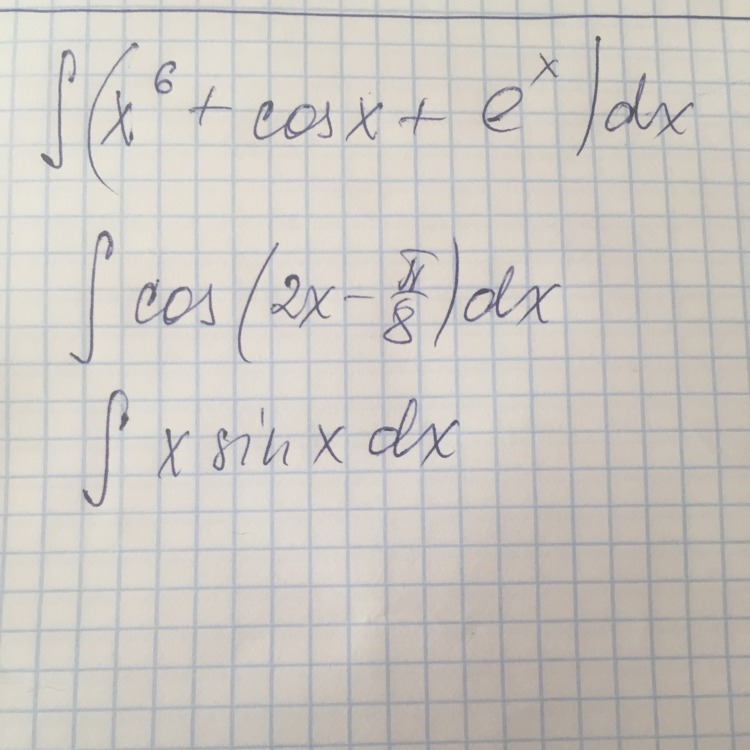 ∫(x⁶ + cos x + eˣ)dx
∫ cos(2x − π/8)dx
∫ x sin x dx